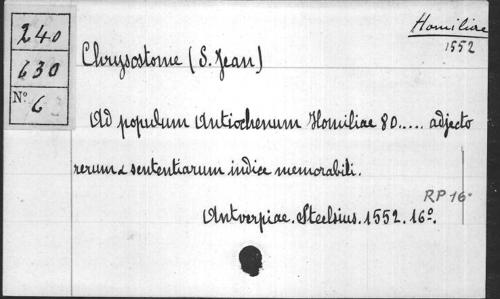 240
630
N° 6
Homiliae
1552
Chrysostome (S. Jean)
Ad populum Antiochenum Homiliae 80..... adjecto
rerum & sententiarum indice memorabili.
RP 16
Antverpiae. Steelsius. 1552. 16°.